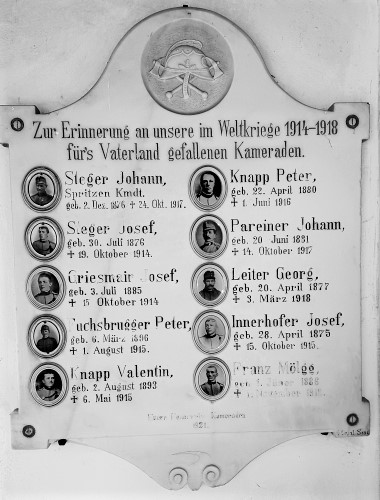 Zur Erinnerung an unsere im Weltkriege 1914-1918
für's Vaterland gefallenen Kameraden.
Steger Johann,
Spritzen Kmdt.
geb. 2. Dez. 1876 ✝ 24. Okt. 1917.
Sieger Josef,
geb. 30. Juli 1876
✝ 19. Oktober 1914.
Griesmair Josef,
geb. 3. Juli 1885
✝ 15 Oktober 1914
Fuchsbrugger Peter,
geb. 6. März 1896
✝ 1. August 1915.
Knapp Valentin,
geb. 2. August 1893
✝ 6. Mai 1915
Knapp Peter,
geb. 22. April 1880
✝ 1. Juni 1916
Pareiner Johann,
geb. 20 Juni 1881
✝ 14. Oktober 1917
Leiter Georg,
geb. 20. April 1877
✝ 3. März 1918
Innerhofer Josef,
geb. 28. April 1875
✝ 15. Oktober 1915.
Franz Mölgg,
geb.
Kameraden